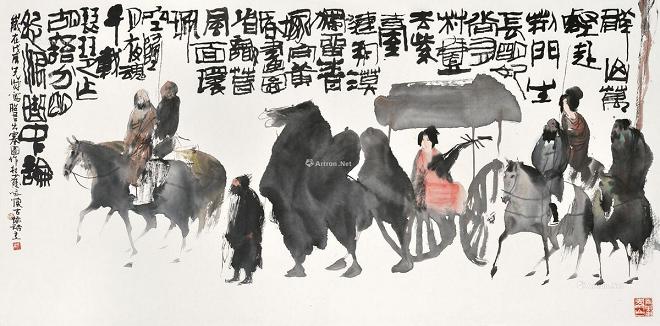 群山萬
壑赴
荊門生
長明妃
尚有
村壹
去紫
臺
連朔漠
獨留青
塚向黃
昏畫圖
省識春
風面環
珮
空歸
月夜魂
千載
琵琶作
胡語分明
怨恨曲中論
Artron.Net